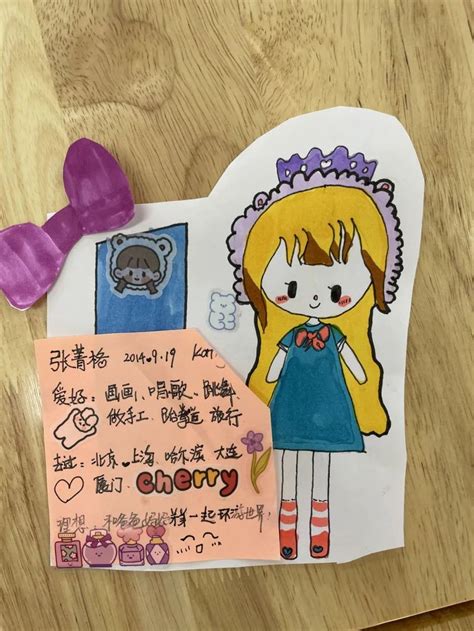 张菁格 2014.9.19
爱好：画画、唱歌、跳舞
做手工、跆拳道 旅行
去过：北京、上海、哈尔滨 大连
厦门 cherry
理想：和爸爸妈妈 一起环游世界！